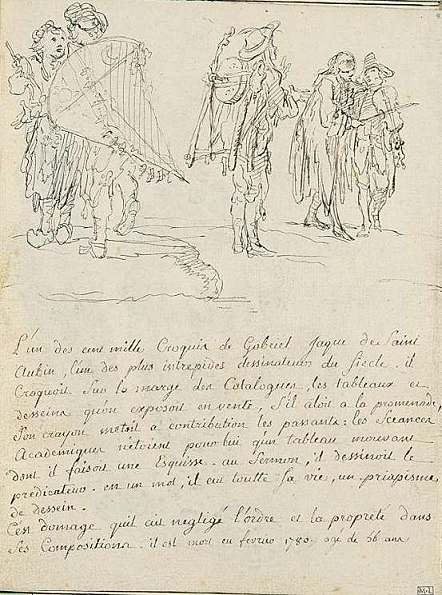 L'un des cent mille Croquis de Gabriel jaque de Saint
Aubin, l'un des plus intrepides dessinateurs du Siecle. il
Croquoit Sur la marge des Catalogues, les tableaux et
desseins qu'on exposoit en vente, S'il aloit a la promenade,
Son crayon metoit a contribution les passants: les Sceances
Academiques n'etoient pour lui qu'un tableau mouvant
dont il faisoit une Esquisse. au Sermon, il dessinoit le
prédicateur. en un mot, il eut toutte Sa vie, un priapisme
de dessein.
C'est domage quil ait negligé l'ordre et la propreté dans
Ses Compositions. il est mort en fevrier 1780. agé de 56 ans
M.L